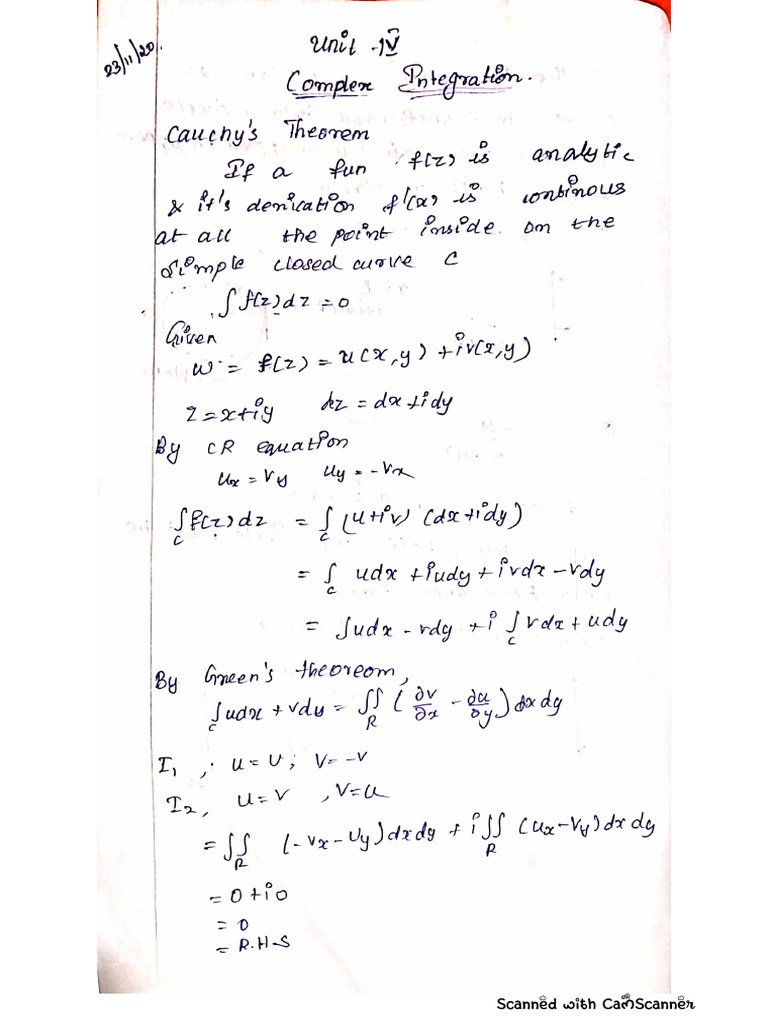 23/11/20.
Unit - IV
Complex Integration.
Cauchy's Theorem
If a fun f(z) is analytic
& it's derication f'(x) is continous
at all the point inside on the
Simple closed curve C
∫ f(z) dz = 0
Given
w = f(z) = u(x, y) + iv(x, y)
z = x + iy dz = dx + idy
By CR equation
ux = vy uy = -vx
∫c f(z) dz = ∫c (u + iv) (dx + idy)
= ∫c udx + iudy + ivdx - vdy
= ∫udx - vdy + i ∫c vdx + udy
By Green's theoreom,
∫c udx + vdy = ∬R (∂v/∂x - ∂u/∂y) dx dy
I1, u = U; V = -V
I2, u = v, V = u
= ∬R (-vx - uy) dxdy + i ∬R (ux - vy) dx dy
= 0 + i0
= 0
= R.H.S
Scanned with CamScanner